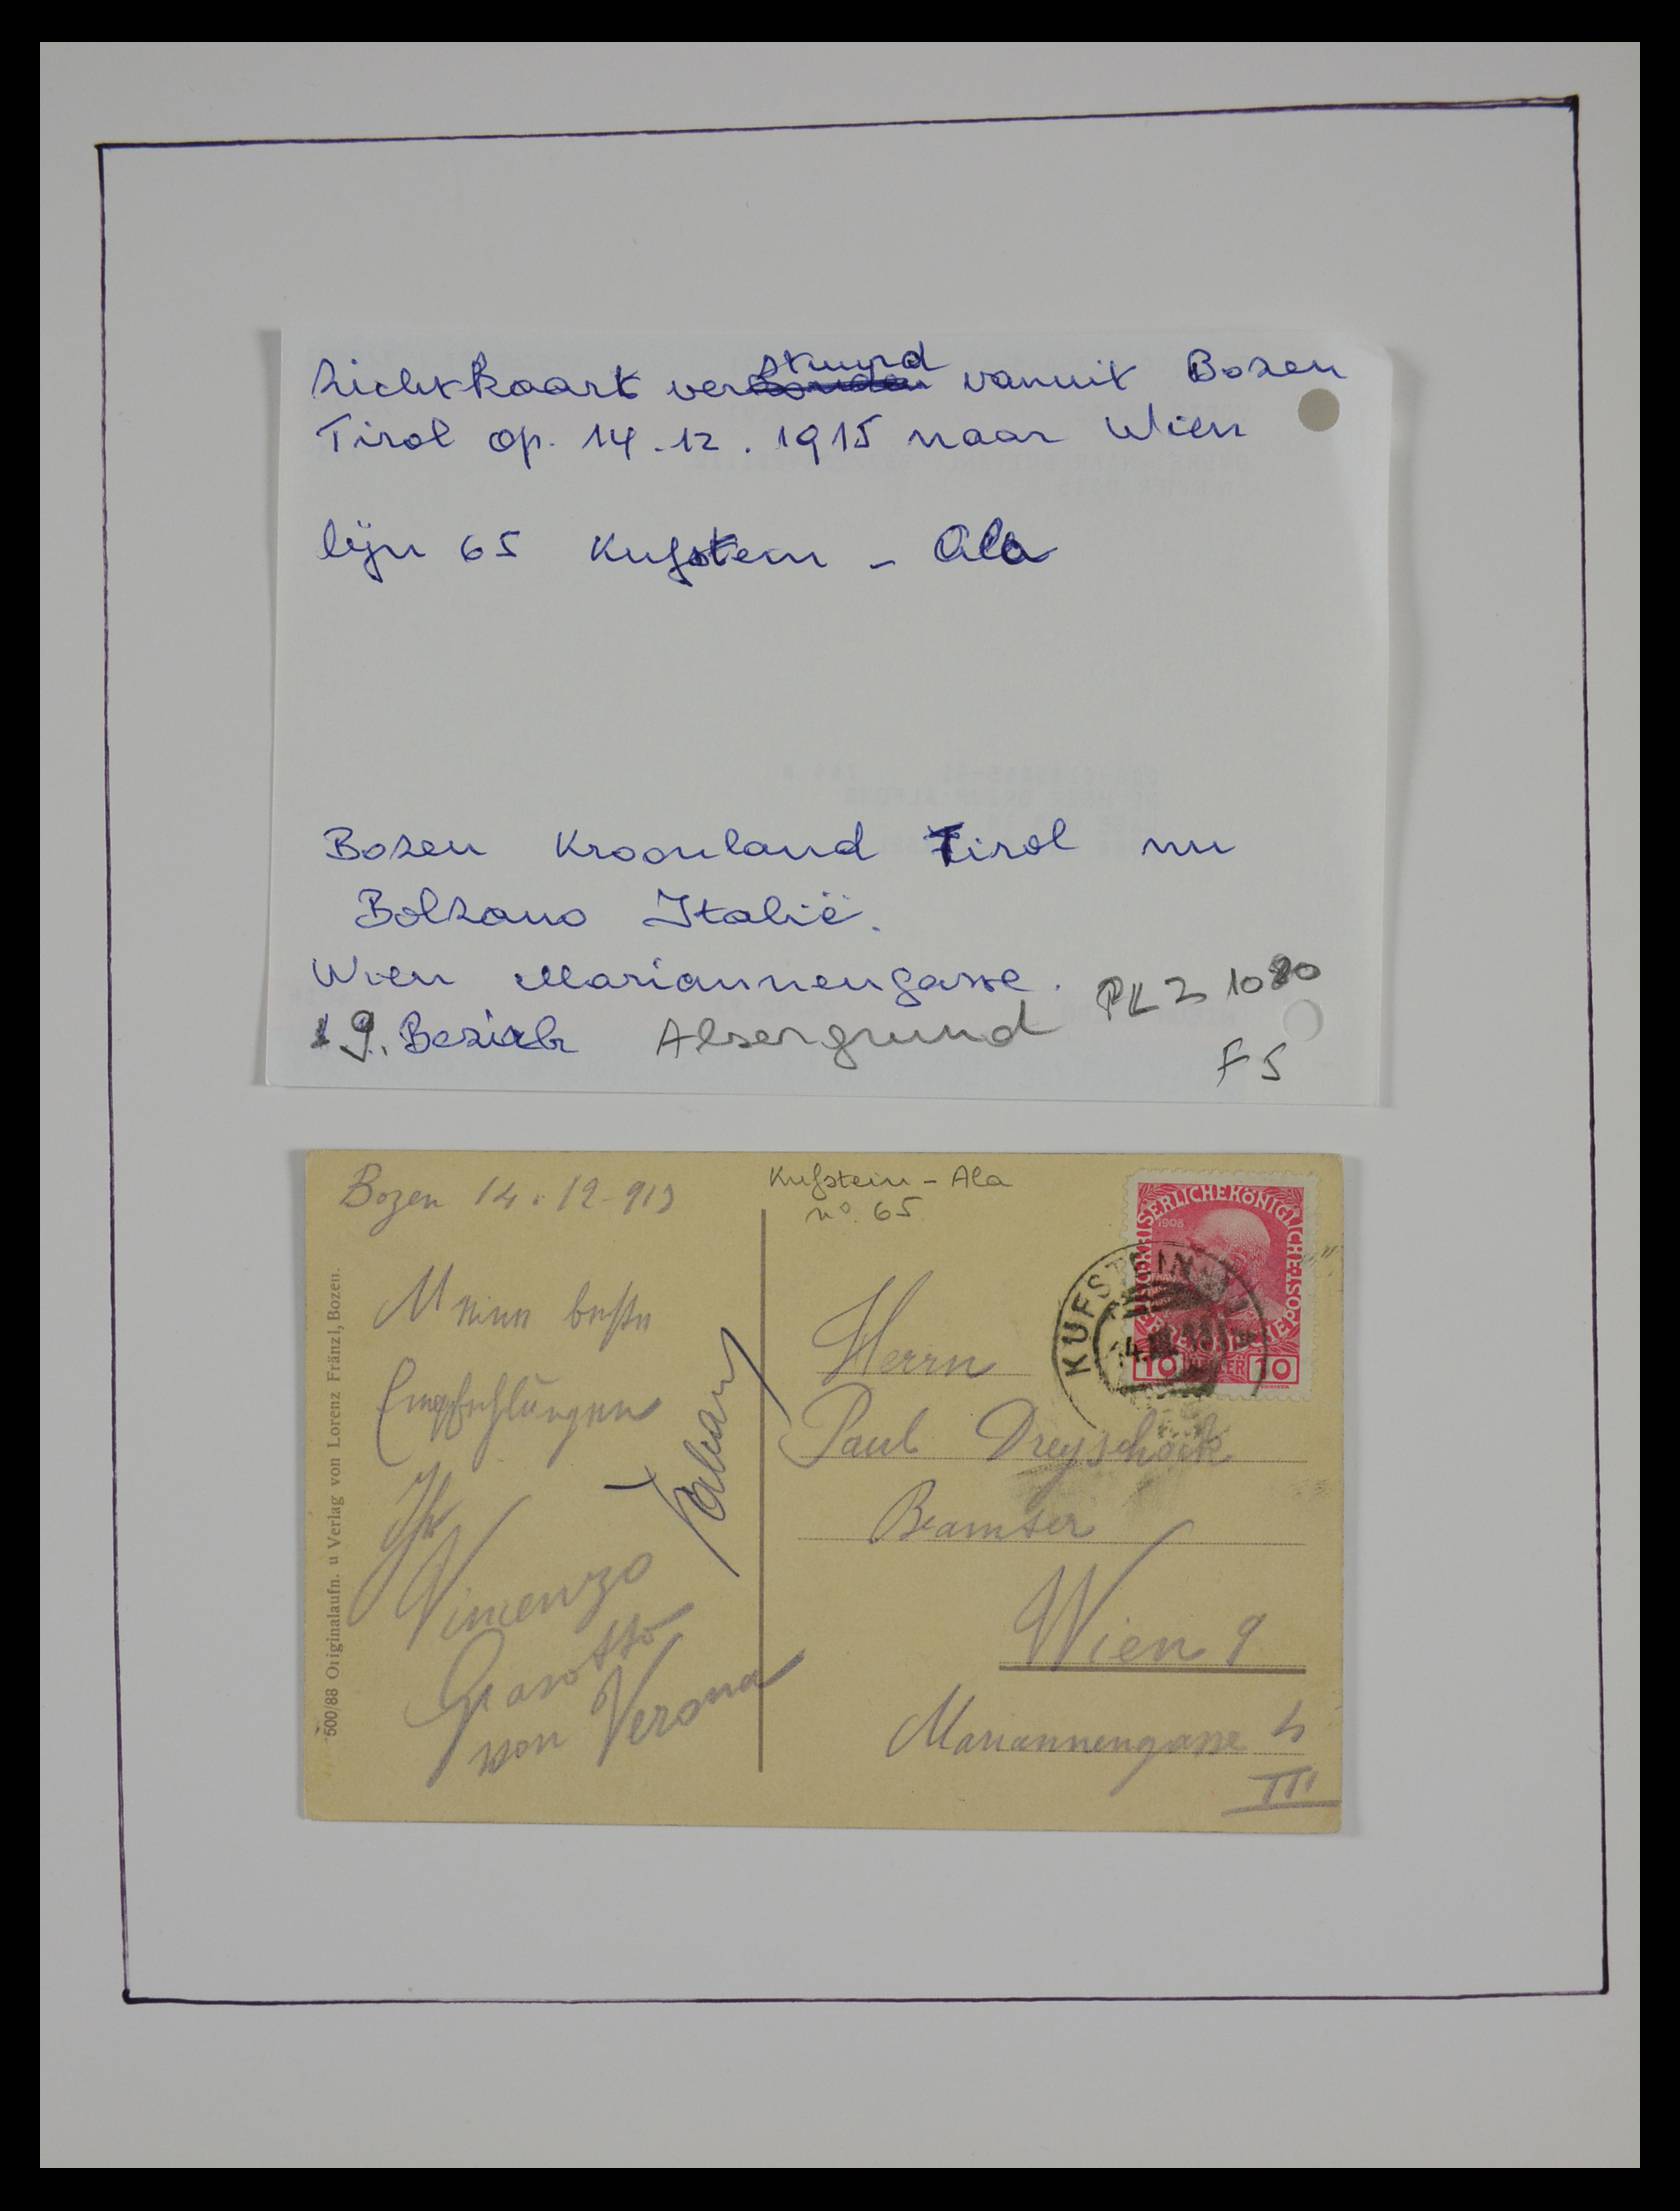 zichtkaart verstuurd vanuit Bozen
Tirol op. 14.12.1915 naar Wien
lijn 65 Kufstein - Ala
Bozen Kroonland Tirol nu
Bolzano Italië.
Wien Mariannengasse. PLZ 1080
19. Bezirk Alsergrund
F5
Bozen 14.12.913
Meine besten
Empfehlungen
Ihr
Vincenzo
Grasotto
von Verona
500/88 Originalaufn. u Verlag von Lorenz Fränzl, Bozen.
Kufstein - Ala
n° 65
KAISERLICHE KÖNIGLICHE
ÖSTERREICHISCHE POST
1908
10 HELLER 10
KUFSTEIN
14.XII.13
Herrn
Paul Dreyschock
Beamter
Wien 9
Mariannengasse
III